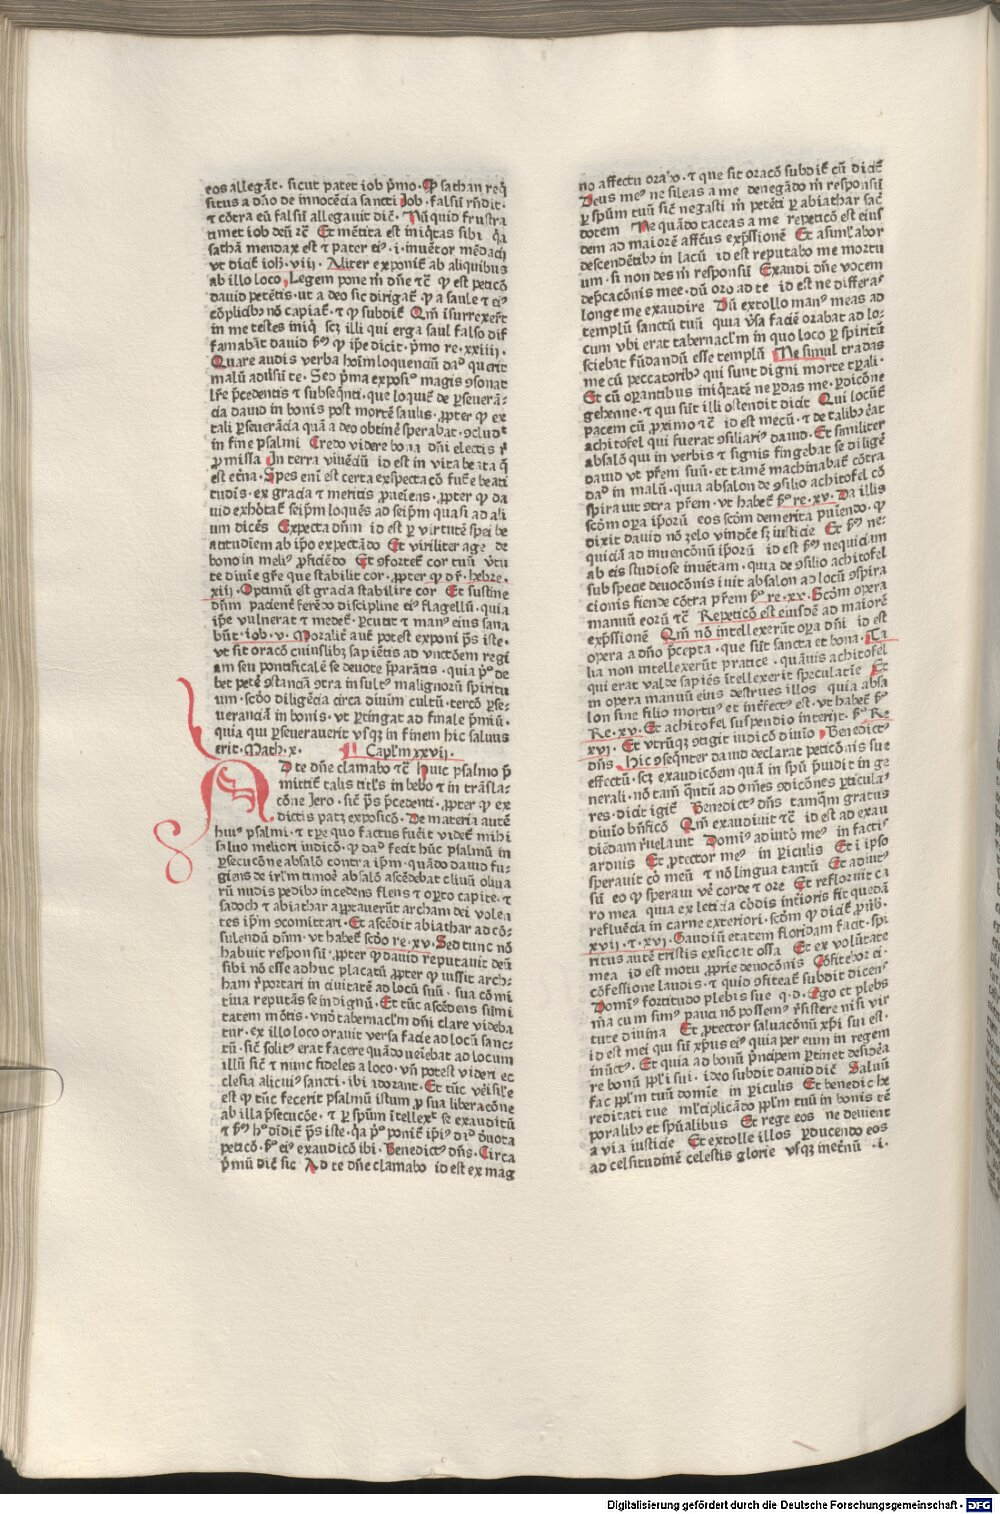 eos allegāt· sicut patet iob ṗmo· Ꝙ sathan reꝗ̄
situs a dño de innocēcia sancti Job· falsū rn̄dit·
⁊ cōtra eū falsū allegauit dic̄t· Nūquid frustra
timet iob deū ⁊c̄ Et mētita est iniꝗ̄tas sibi ꝗa
sathā mendax est ⁊ pater ei⁹· i· inuētor mēdacij
vt dicit̄ ioħ· viij· Aliter exponit̄ ab aliquibus
ab illo loco Legem pone m̄ dn̄e ⁊c̄ ꝙ est peticō
dauid petētis· vt a deo sic dirigat̄ ꝙ a saule ⁊ ei⁹
cōplicib⁹ nō capiat̄· ⁊ ꝙ subdit̄ Qm̄ īsurrexer̄t
in me testes iniꝗ̄ scꝫ illi qui erga saul falso dif
famabāt dauid ꝑ̄⁹ ꝙ ip̄e dicit· ṗmo re· xxiij·
Quare audis verba hoīm loquenciū dā⁹ querit
malū adūsū te· Sed ṗma exposi⁹ magis ꝯsonat
lr̄e ṗcedentis ⁊ subseqn̄ti· que loquit̄ de ꝑseuerā-
cia dauid in bonis post mortē saulis· ꝓpter ꝙ ex
tali ꝑseuerācia quā a deo obtinē sperabat· ꝯclud̄t
in fine psalmi Credo videre bona dn̄i electis r̄
ꝓmissa In terra viuēciū id est in vita beata ꝗ̄
est et̄na· Spes eni est certa exspectacō fut̄e beati
tudis· ex gracia ⁊ meritis ꝓueiens· ꝓpter ꝙ da
uid exhōtat̄ seip̄m loquēs ad seip̄m quasi ad ali
um dicēs Expecta dn̄m id est ꝑ virtutē spei be
atitudīem ab ip̄o expectādo Et viriliter age de
bono in meli⁹ ꝓficiēdo Et ꝯfortet̄ cor tuū v̄tu
te diuīe gr̄e que stabilit cor· ꝓpter ꝙ dr̄· hebre·
xiij· Optimū est gracia stabilire cor Et sustine
dn̄m pacient̄ ferēdo discipline ei⁹ flagellū· quia
ip̄e vulnerat ⁊ medet̄· ꝑcutit ⁊ man⁹ eius sana
būt· iob· v· Moralit̄ aut̄ potest exponi p̄s iste·
vt sit oracō cuiuslibꝫ sapiētis ad vnctōem regi
am seu pontificalē se deuote ꝑparātis· quia p⁰ de
bet petē ꝯstanciā ꝯtra insult⁹ malignorū spiritu
um· scd̄o diligēcia circa diuinū cultū· tercō ꝑse-
uerancīā in bonis· vt ꝑtingat ad finale p̄miū·
quia qui perseuerauerit vsqꝫ in finem hic saluus
erit· Math· x· Capl'm xxvij·
AD te dn̄e clamabo ⁊c̄ Huic psalmo p̄
mittit̄ talis titl's in hebo ⁊ in trāsla-
cōne Jero· sic̄t p̄s p̄cedenti· ꝓpter ꝙ ex
dictis patꝫ exposicō· De materia autē
hui⁹ psalmi· ⁊ tꝑe quo factus fuit̄ videt̄ mihi
saluo meliori iudicō· ꝙ dā⁹ fecit huc psalmū in
ꝑsecucōne absalō contra ip̄m· quādo dauid fu-
giens de irl'm timoȓ absalō ascēdebat cliuū oliua
rū nudis pedib⁹ incedens flens ⁊ oꝑto capite· ⁊
sadoch ⁊ abiathar apꝑtauerūt archam dei volē
tes ip̄m ꝯcomittari· Et ascēdit abiathar ad cō-
sulendū dn̄m· vt habet̄ scd̄o re· xv· Sed tunc nō
habuit responsū· ꝓpter ꝙ dauid reputauit deū
sibi nō esse adhuc placatū ꝓpter ꝙ iussit arch-
ham r̄portari in ciuitatē ad locū suū· sua cōmi
tiua reputās se indignū· Et tūc ascēdens sūmi
tatem mōtis· vn̄ō tabernacl'm dn̄i clare videba
tur· ex illo loco orauit versa facie ad locū sanc-
tū· sic̄t solit⁹ erat facere quādo ueīebat ad locum
illū sic̄t ⁊ nunc fideles a loco· vn̄ potest videri ec
clesia alicui⁹ sancti· ibi adorant· Et tūc v̄eisil'e
est ꝙ tūc fecerit psalmū istum ꝓ sua liberacōne
ab illa p̄secucōe· ⁊ ꝑ spūm ītellex̄t se exauditū
⁊ ꝑ̄⁹ h⁰ didic̄t p̄s iste· qa p⁰ ponit̄ ip̄i⁹ dā⁹ d̄uota
peticō· ꝑ⁰ ei⁹ exaudicō ibi· Benedict⁹ dn̄s· Circa
p̄mū dic̄t sic Ad te dn̄e clamabo id est ex mag
no affectu ora⁹o· ⁊ que sit oracō subdit̄ cū dicit̄
Deus me⁹ ne sileas a me denegādo m̄ responsū
ꝑ spūm tuū sic̄t negasti m̄ petēti ꝑ abiathar sac̄
dotem Ne quādo taceas a me repeticō est eius
dem ad maiorē affc̄tus exp̄ssionē Et asimꝉabor
descendētib⁹ in lacū id est reputabo me mortu
um· si non des m̄ responsū Exaudi dn̄e vocem
dep̄cacōnis mee· dū oro ad te id est ne differas
longe me exaudire Dū extollo man⁹ meas ad
templū sanctū tuū quia v̄sa faciē orabat ad lo-
cum vbi erat tabernacl'm in quo loco ꝑ spiritū
sciebat fūdandū esse templū Ne simul tradas
me cū peccatorib⁹ qui sunt digni morte tꝑali·
Et cū oꝑantibus iniꝗ̄tatē ne ꝑdas me· ꝑdicōne
gehenne· ⁊ qui sūt illi ostendit dicīt Qui locūt̄
pacem cū ꝓximo ⁊c̄ id est mecū· ⁊ de talib⁹ erāt
achitofel qui fuerat ꝯsiliari⁹ dauid· Et similiter
absalō qui in verbis ⁊ signis fingebat se diligē
dauid vt p̄rem suū· et tamē machinabat̄ cōtra
dā⁹ in malū· quia absalon de ꝯsilio achitofel cō
spirauit ꝯtra p̄rem· vt habet̄ ꝑ⁰ re· xv· Da illis
scd̄m oꝑa ip̄orū eos scd̄m demerita puīendo· ꝙ
dixit dauid nō zelo vindc̄e sꝫ iusticīe Et ꝑ̄⁹ ne-
quiciā ad inuencōnū ip̄orū id est ꝑ̄⁹ nequiciam
ab eis studiose inuētam· quia de ꝯsilio achitofel
sub specie deuocōnis iuit absalon ad locū ꝯspira
cionis fiende cōtra p̄rem ꝑ⁰ re· xv· Scd̄m oꝑera
manuū eorū ⁊c̄ Repeticō est eiusdē ad maiorē
exp̄ssionē Qm̄ nō intellexerūt oꝑa dn̄i id est
opera a dn̄o p̄cepta· que sūt sancta et bona· Ta
lia non intellexerūt pratice· quāuis achitofel
qui erat valde sapiēs ītellexerit speculatīe Et
in opera manuū eius destrues illos quia absa
lon sine filio mortu⁹ et int̄fect⁹ est· vt habet̄ ꝑ⁰
Re· xv· Et achitofel suspendio interijt· ꝑ⁰ Re
xvj· Et vtrūqꝫ ꝯtigit iudicō diuīo Benedict⁹
dn̄s Hic ꝯseqn̄ter dauid declarat peticōnis sue
effectū· scꝫ exaudicōem quā in spū p̄uidit in ge
nerali· nō tam̄ qntū ad om̄es ꝯdicōnes ꝑticula⁹
res· dicit igit̄ Benedict⁹ dn̄s tamq̄m gratus
diuīo bn̄ficō Qm̄ exaudiuit ⁊c̄ id est ad exau
diēdam r̄uelauit Domi⁹ adiutō me⁹ in factis
arduis Et ꝓtector me⁹ in ꝑiculis Et i ipso
sperauit cō meū ⁊ nō lingua tantū Et adiut⁹
sū eo ꝙ speraui v̄e corde ⁊ ore Et refloruit ca
ro mea quia ex leticia cōdis int̄ioris fit quedā
refluēcia in carne exteriori· scōm ꝙ dicit̄ ꝓūb·
xvij· ⁊· xvj· Gaudiū etatem floridam facit· spi
ritus autē tristis exsiccat ossa Et ex volūtate
mea id est motu ꝓprie deuocōnis Cōfitebor ei·
cōfessione laudis· ⁊ quid ꝯfiteat̄ subdit dicens
Domi⁹ fortitudo plebis sue q· d· Ego et plebs
m̄a cum sim⁹ pauci nō possem⁹ r̄sistere nisi vir
tute diuina Et ꝓtector saluacōnū xp̄i sui est·
id est mei qui sū xp̄us ei⁹ quia per eum in regem
inūct⁹· Et quia ad bonū p̄ncipem ꝑtinet desidēa
re bonū ppl'i sui· ideo subdit dauid dic̄t Saluū
fac ppl'm tuū domīe in ꝑiculis Et benedic he
reditati tue ml'tiplicādo ppl'm tuū in bonis tē
poralib⁹ et spūalibus Et rege eos ne deuient
a via iusticie Et extolle illos ꝑducendo eos
ad celsitudinē celestis glorie vsqꝫ inet̄nū ·i·
Digitalisierung gefördert durch die Deutsche Forschungsgemeinschaft - DFG